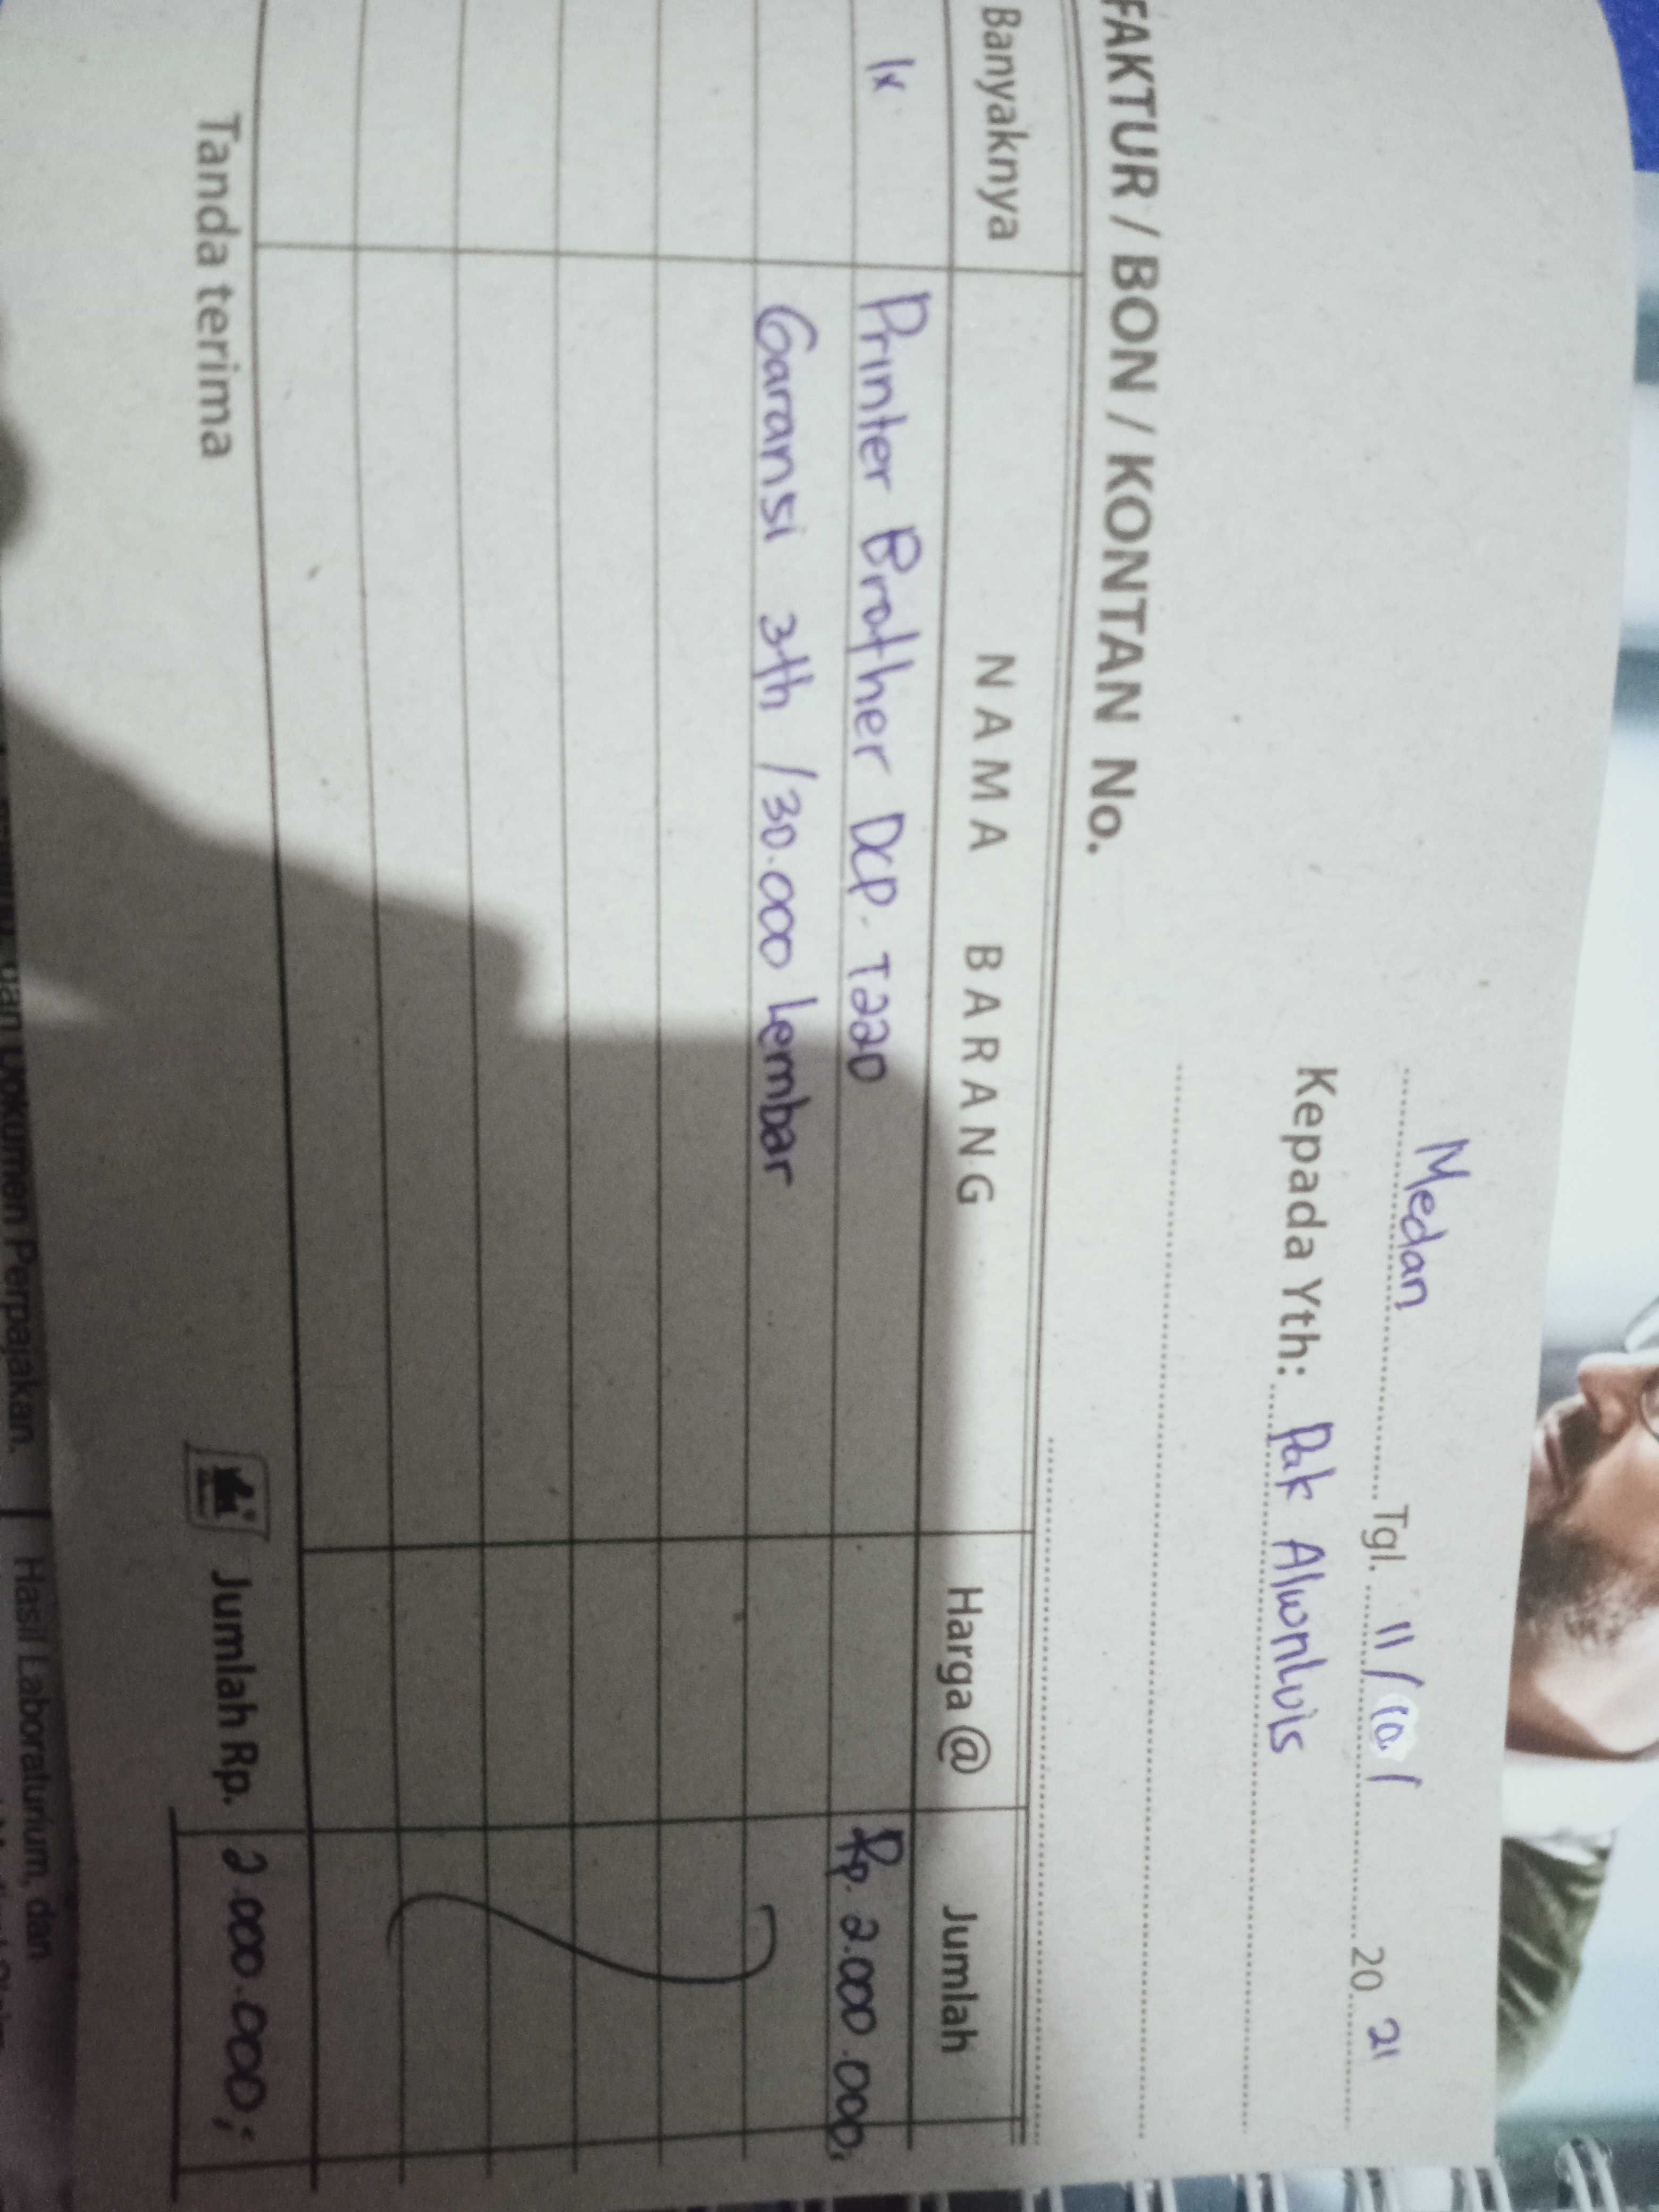 Medan Tgl. 11/10/ 20 21
Kepada Yth: Pak Alwnluis
FAKTUR / BON / KONTAN No.
Banyaknya NAMA BARANG Harga @ Jumlah
1x Printer Brother DCP. T220 Rp. 2.000.000,
Garansi 3th /30.000 lembar
Tanda terima Jumlah Rp. 2.000.000,-
dan Dokumen Perpajakan.
Hasil Laboraturium, dan